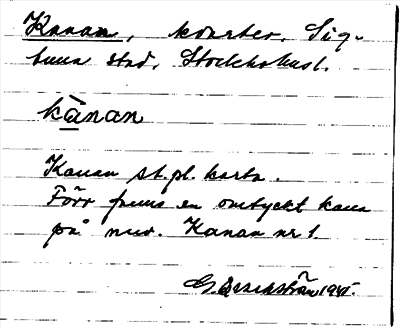 Kanan, kvarter. Sig-
tuna stad, Stockholms l.
kànan
Kanan st. pl. karta.
Förr fanns en omtyckt kana
på nuv. Kanan nr 1.
G. Ericsström 1945.